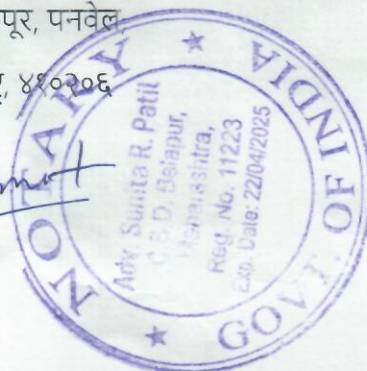 पूर, पनवेल
४१०२०६
NOTARY
GOVT. OF INDIA
Adv. Sunita R. Patil
C.B.D. Belapur,
Maharashtra,
Reg. No. 11223
Exp. Date: 22/04/2025